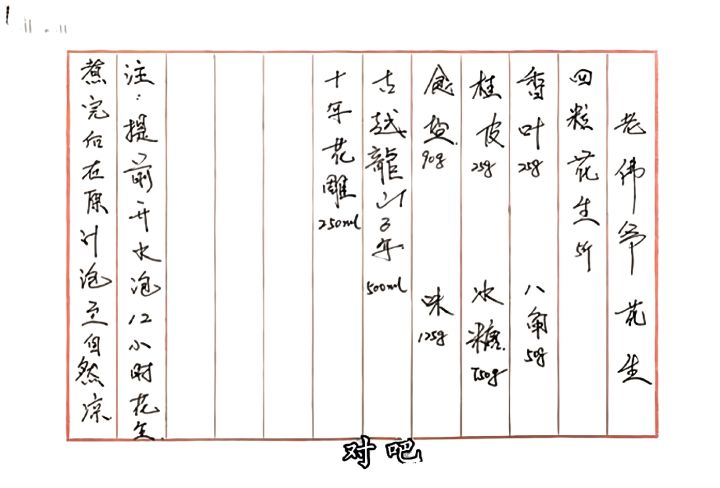 老伟爷花生
四粒花生5斤
香叶25g 八角50g
桂皮25g 冰糖750g
食盐90g 味125g
古越龍山3年500ml
十年花雕250ml
注：提前开水泡12小时花生
煮完后在原汁泡至自然凉
对吧